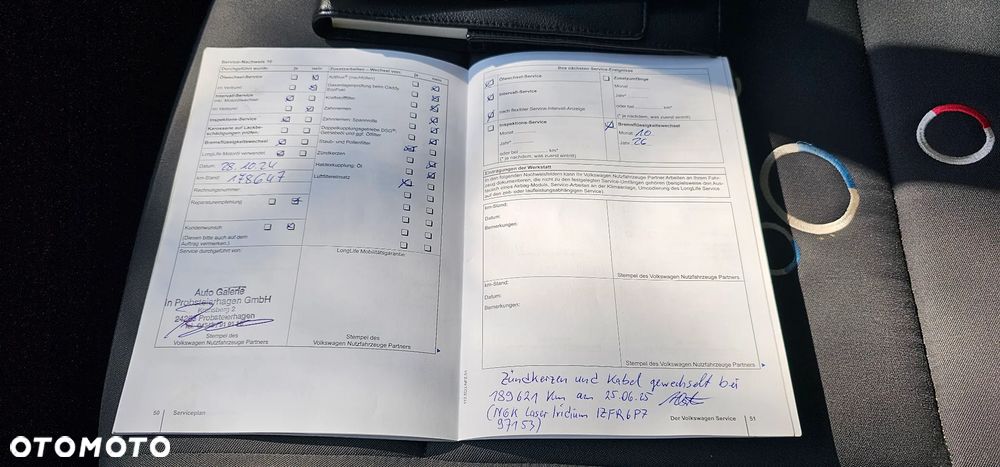 Service-Nachweis 10
Durchgeführt wurde: ja nein
Ölwechsel-Service
Im Verbund
Intervall-Service
inkl. Motorölwechsel
Im Verbund
Inspektions-Service
Karosserie auf Lackbe-
schädigungen prüfen:
Bremsflüssigkeitswechsel
LongLife Motoröl verwendet
Datum: 28.10.24
km-Stand: 178647
Rechnungsnummer:
Reparaturempfehlung
Kundenwunsch
(Diesen bitte auch auf dem
Auftrag vermerken.)
Service durchgeführt von:
Auto Galerie
in Probsteierhagen GmbH
24253 Probsteierhagen
Stempel des
Volkswagen Nutzfahrzeuge Partners
50 Serviceplan
Zusatzarbeiten – Wechsel von: ja nein
AdBlue® (nachfüllen)
Gasanlagenprüfung beim Caddy
EcoFuel
Kraftstofffilter
Zahnriemen
Zahnriemen: Spannrolle
Doppelkupplungsgetriebe DSG®:
Getriebeöl und ggf. Ölfilter
Staub- und Pollenfilter
Zündkerzen
Haldexkupplung: Öl
Luftfiltereinsatz
LongLife Mobilitätsgarantie:
Stempel des
Volkswagen Nutzfahrzeuge Partners
Die nächsten Service-Ereignisse
Ölwechsel-Service
Intervall-Service
nach flexibler Service-Intervall-Anzeige
Inspektions-Service
Monat
Jahr*
oder bei km*
(* je nachdem, was zuerst eintritt)
Zusatzumfänge
Monat
Jahr*
oder bei km*
(* je nachdem, was zuerst eintritt)
Bremsflüssigkeitswechsel
Monat 10
Jahr 26
Eintragungen der Werkstatt
In den folgenden Nachweisfeldern kann Ihr Volkswagen Nutzfahrzeuge Partner Arbeiten an Ihrem Fahr-
zeug dokumentieren, die nicht zu den festgelegten Service-Umfängen gehören (beispielsweise den Aus-
tausch eines Airbag-Moduls, Service-Arbeiten an der Klimaanlage, Umcodierung des LongLife Service
auf den zeit- oder laufleistungsabhängigen Service).
km-Stand:
Datum:
Bemerkungen:
Stempel des Volkswagen Nutzfahrzeuge Partners
km-Stand:
Datum:
Bemerkungen:
Stempel des Volkswagen Nutzfahrzeuge Partners
Zündkerzen und Kabel gewechselt bei
189621 Km am 25.06.25
(NGK Laser Iridium IZFR6P7
97153)
Der Volkswagen Service 51
OTOMOTO